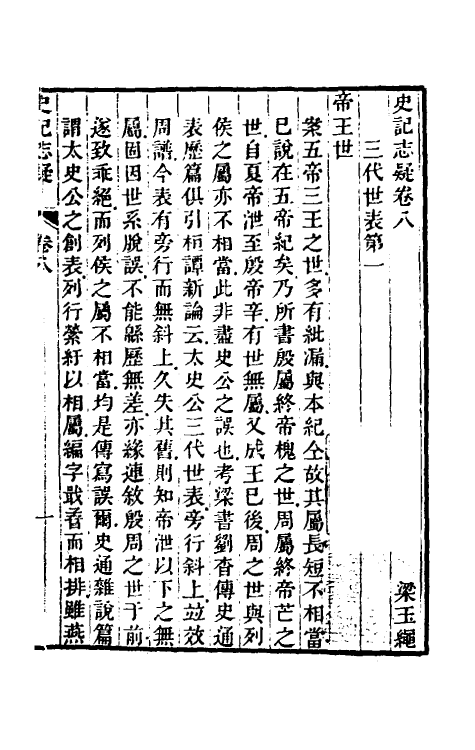 史記志疑卷八　梁玉繩
三代世表第一
帝王世
案五帝三王之世多有紕漏與本紀仝故其屬長短不相當
已說在五帝紀矣乃所書殷屬終帝槐之世周屬終帝芒之
世自夏帝泄至殷帝辛有世無屬又成王已後周之世與列
侯之屬亦不相當此非盡史公之誤也考梁書劉杳傳史通
表歷篇俱引桓譚新論云太史公三代世表旁行斜上竝效
周譜今表有旁行而無斜上久失其舊則知帝泄以下之無
屬固因世系脫誤不能緜歷無差亦緣連敘殷周之世于前
遂致乖絕而列侯之屬不相當均是傳寫誤爾史通雜說篇
謂太史公之創表列行縈紆以相屬編字戢孴而相排雖燕
史記志疑　卷八　一